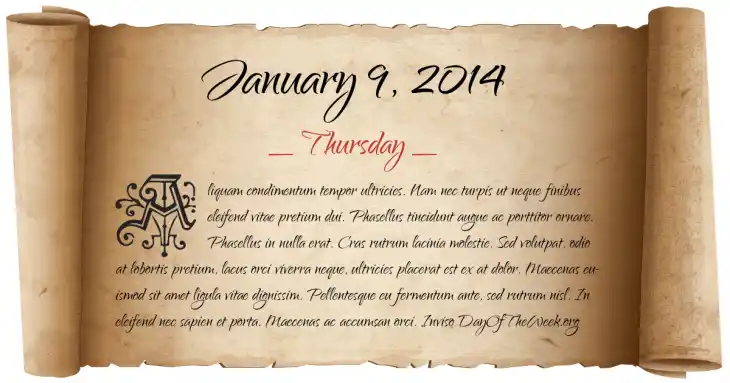 January 9, 2014
_ Thursday _
Aliquam condimentum tempor ultricies. Nam nec turpis ut neque finibus
eleifend vitae pretium dui. Phasellus tincidunt augue ac porttitor ornare.
Phasellus in nulla erat. Cras rutrum lacinia molestie. Sed volutpat, odio
at lobortis pretium, lacus orci viverra neque, ultricies placerat est ex at dolor. Maecenas eu-
ismod sit amet ligula vitae dignissim. Pellentesque eu fermentum ante, sed rutrum nisl. In
eleifend nec sapien et porta. Maecenas ac accumsan orci. Inviso DayOfTheWeek.org